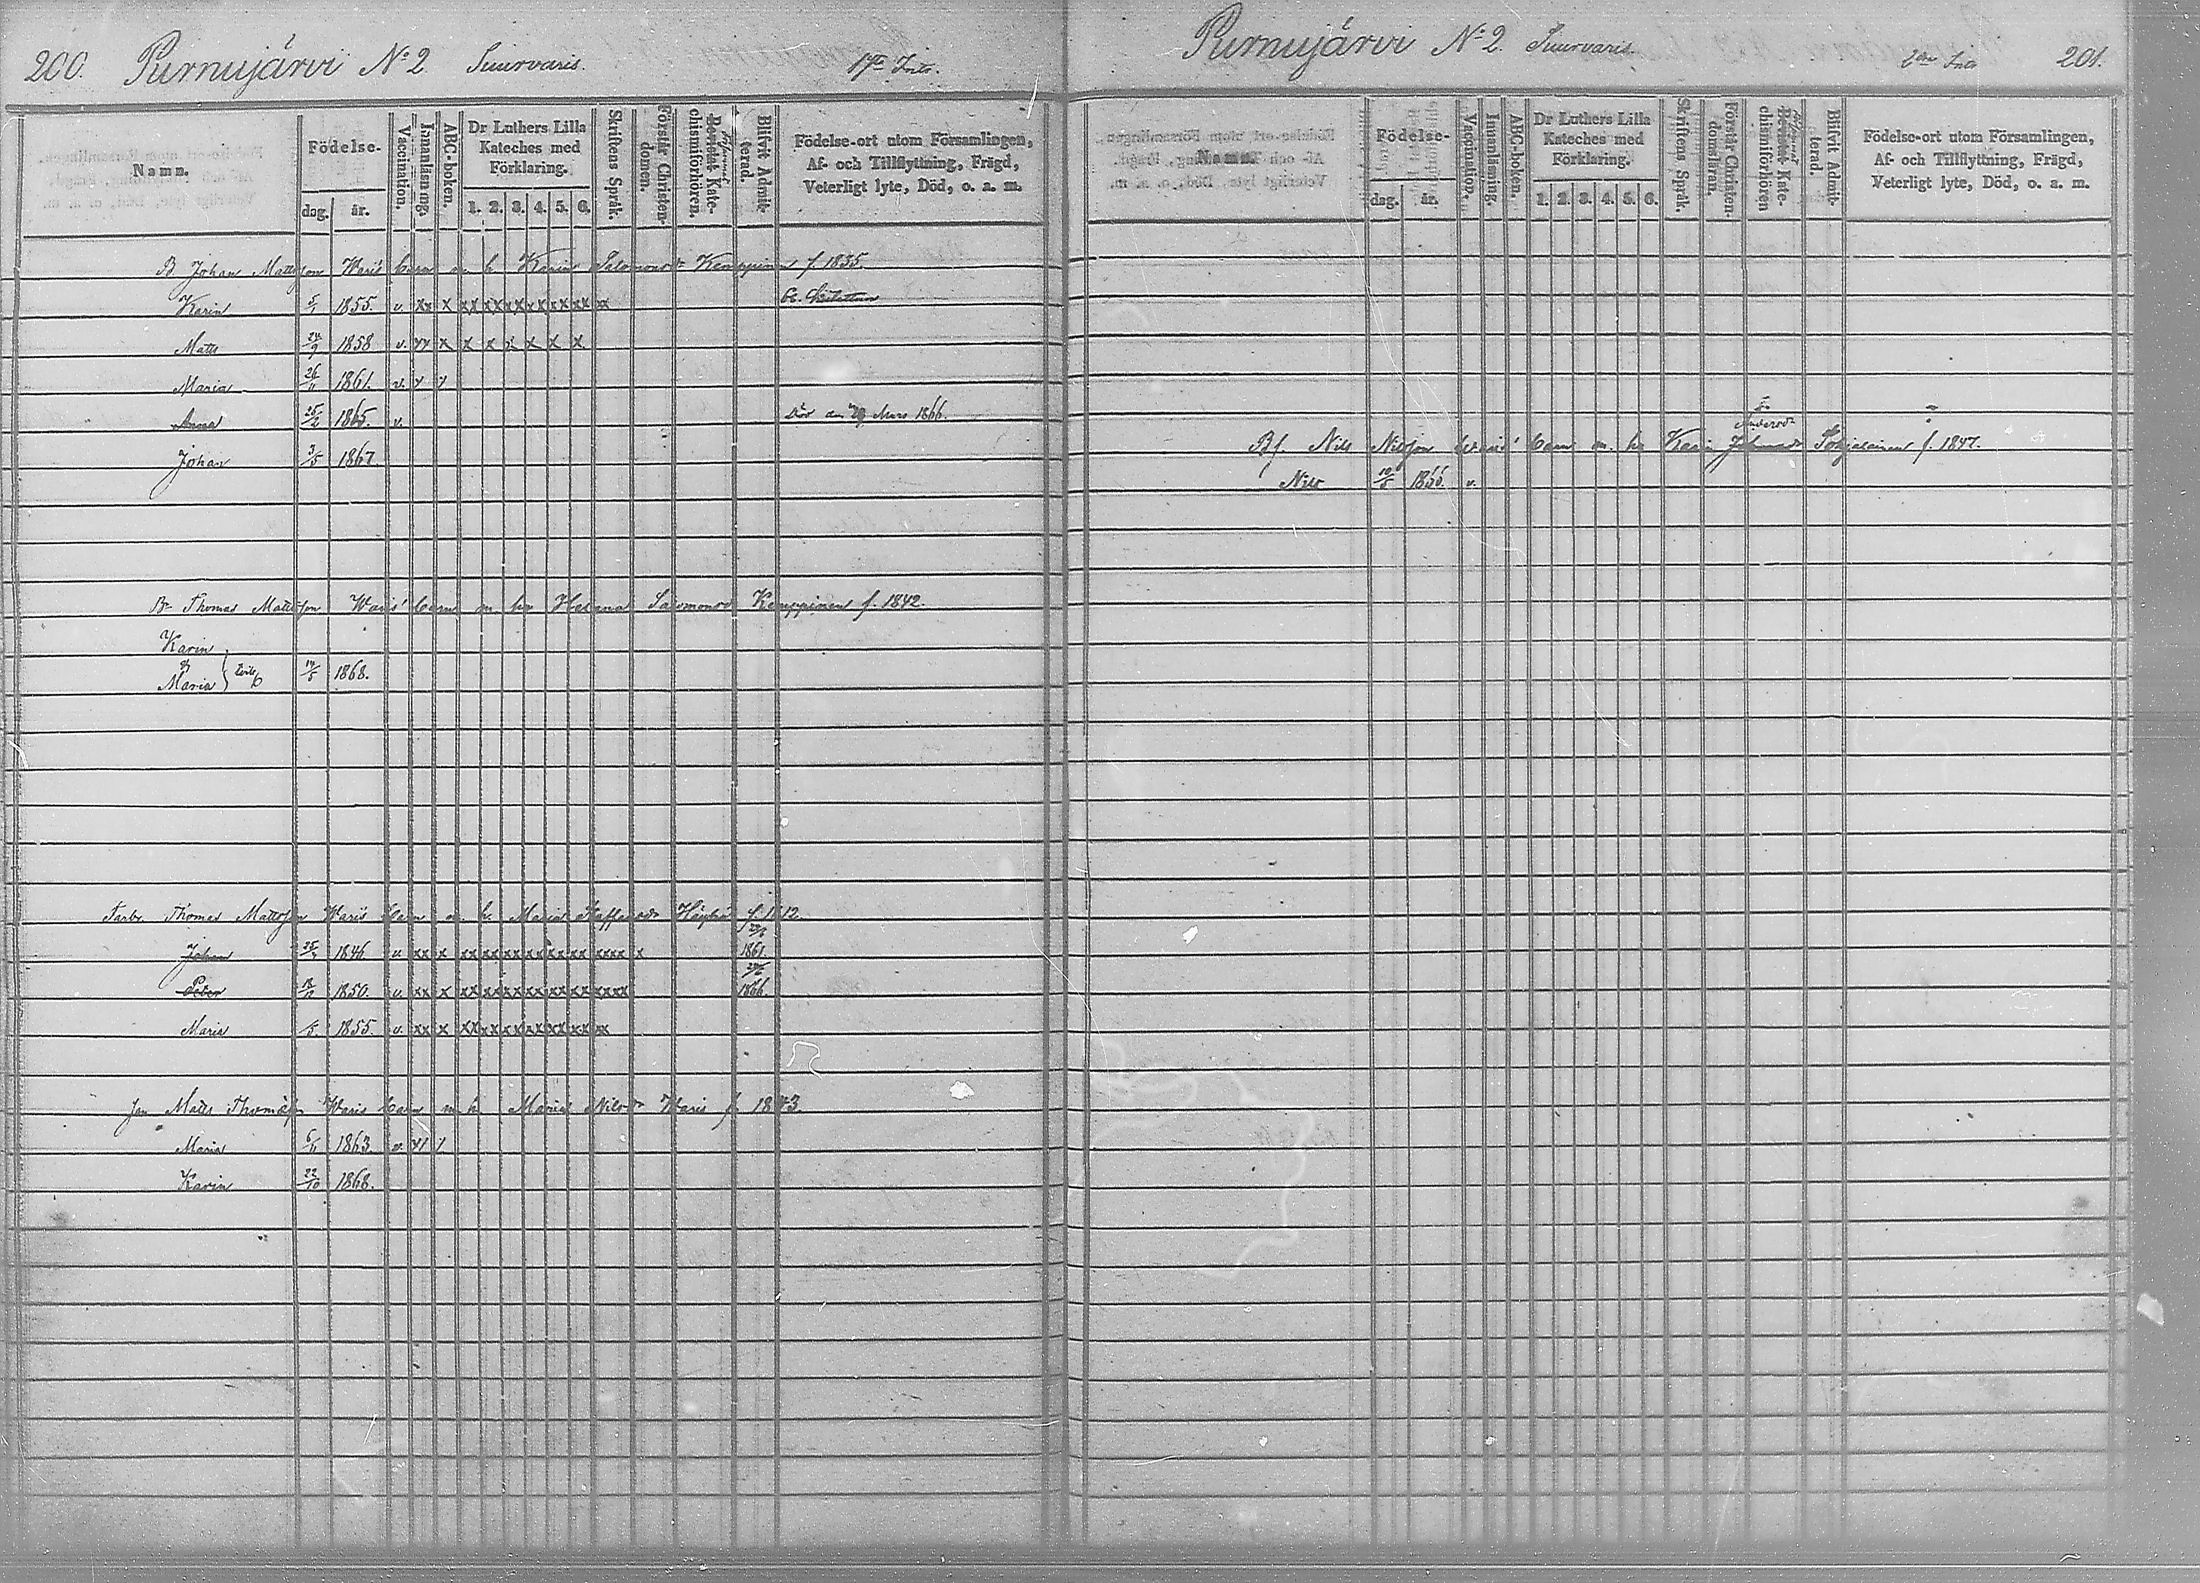 200. Purnujärvi No 2. Suurvaris.
Namn.
Födelse-
dag. år.
Vaccination.
Innanläsning.
ABC-boken.
Dr Luthers Lilla Kateches med Förklaring.
1. 2. 3. 4. 5. 6.
Skriftens Språk.
Förstår Christendomen.
Bevistat Katechismiförhören.
Blifvit Admitterad.
Födelse-ort utom Församlingen,
Af- och Tillflyttning, Frägd,
Veterligt lyte, Död, o. a. m.
B. Johan Mattsson Waris barn m. h. Karin Salomonsdr Kemppinen f. 1835.
Karin 5/1 1855. v. xx x xx xx xx xx xx xx xx
Matts 24/9 1858 v. x x x x x x x
Maria 26/11 1861. v.
Anna 25/2 1865. v. Mars 1866.
Johan 3/5 1867.
Br Thomas Mattsson Waris' barn m. hu Helena Salomonsdr Kemppinen f. 1842.
Karin
&
Maria 14/5 1868.
Thomas Mattsson Waris barn m. h. Maria f. 1812.
Johan 1846. v. xx x xx xx xx xx xx xx xxxx x 1861.
Peter 1850. v. xx x xx xx xx xx xx xx xxxx 1866.
Maria 1855. v. xx x xx xx xx xx xx xx xx
Matts Thomasson Waris barn m h. Maria Nilsdr Waris f. 1843.
Maria 6/11 1863 v.
Karin 22/10 1868.
Purnujärvi No 2. Suurvaris. 201.
Namn.
Födelse-
dag. år.
Vaccination.
Innanläsning.
ABC-boken.
Dr Luthers Lilla Kateches med Förklaring.
1. 2. 3. 4. 5. 6.
Skriftens Språk.
Förstår Christendomsläran.
Bevistat Katechismiförhören
Blifvit Admitterad.
Födelse-ort utom Församlingen,
Af- och Tillflyttning, Frägd,
Veterligt lyte, Död, o. a. m.
Andersdr
Bf. Nils Nilsson Waris' barn m. hu Karin Pohjalainen f. 1847.
Nils 10/5 1866. v.